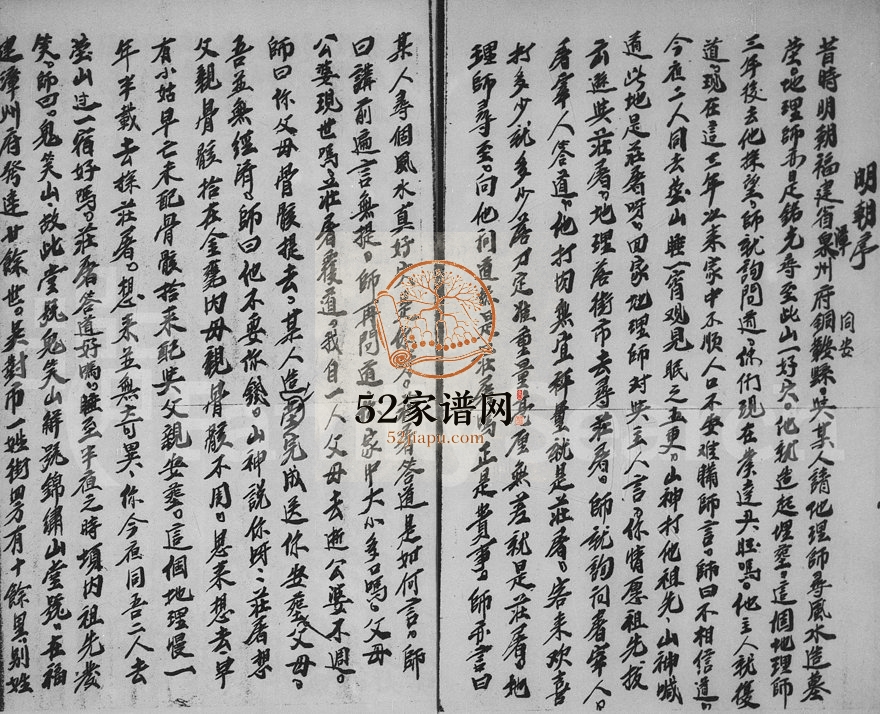 明朝序
昔時明朝福建省泉州府銅鞍縣吳某人請地理師尋風水造墓
漳 同安
瑩。地理師亦是銘尤尋至此山一好穴。他就造起埋塟。這個地理師
三年後去他探望。師就詢問道。你們現在發達興旺嗎。他主人就復
道。現在這三年以來家中不順人口不安難購師言。師曰不相信道。
今夜二人同去塋山睡一宵观見眠之五更。山神打他祖先。山神喊
道此地是莊看呀。回家地理師对吳主人言。你情愿祖先拔
去避吳莊看。地理落街市去尋莊看。師就詢问看宰人。
看宰人答道。他打肉無宜秤量就是莊看。客来欢喜
打多少就多少落刀定准重量毫厘無差就是莊看。地
理師尋至。问他问道 是莊看嗎。正是貴事。師亦言曰
某人尋個風水真好穴是 答道是如何言。師
曰講前遍言無提。師再問道 家中大小多嗎。父母
公婆現世嗎。莊看覆道。我自一人父母去逝公婆不週。
師曰你父母骨骸提去。某人造瑩完成送你安塟父母。
吾並無經濟。師曰他不要你錢。山神說你呀。莊看想
父親骨骸拾在金甕内母親骨骸不周。思来想去早
有小姑早亡未配骨骸拾来配吳父親安塟。這個地理慢一
年半載去探莊看。想来並無奇異。你今夜同吾二人去
塋山过一宿好嗎。莊看答道好嗎。睡至半夜之時項内祖先發
笑。師曰。鬼笑山故此堂号鬼笑山解號錦绣山堂號。在福
建漳州府發達廿餘世。吳對市一姓街四方有十餘里。別姓
52家谱网
52jiapu.com